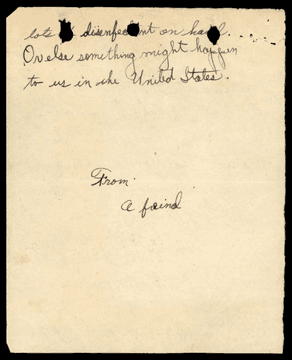 lots of disenfectent on hand.
Or else something might happen
to us in the United States.
From
a freind